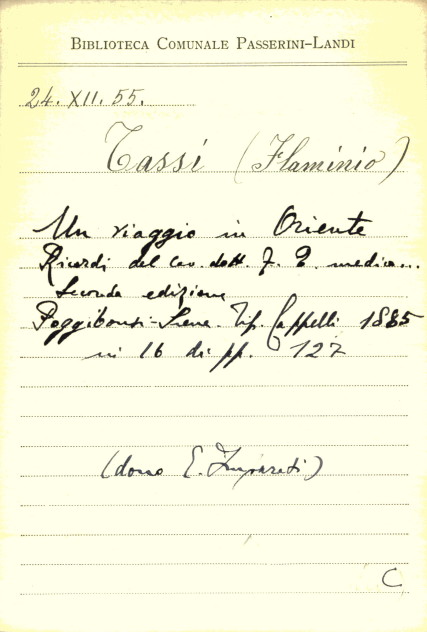 BIBLIOTECA COMUNALE PASSERINI-LANDI
24. XII. 55.
Tassi (Flaminio)
Un viaggio in Oriente
Ricordi del cav. dott. F. T. medico...
Seconda edizione
Poggibonsi-Siena. Tip. Cappelli 1885
in 16 di pp. 127
(dono E.
C